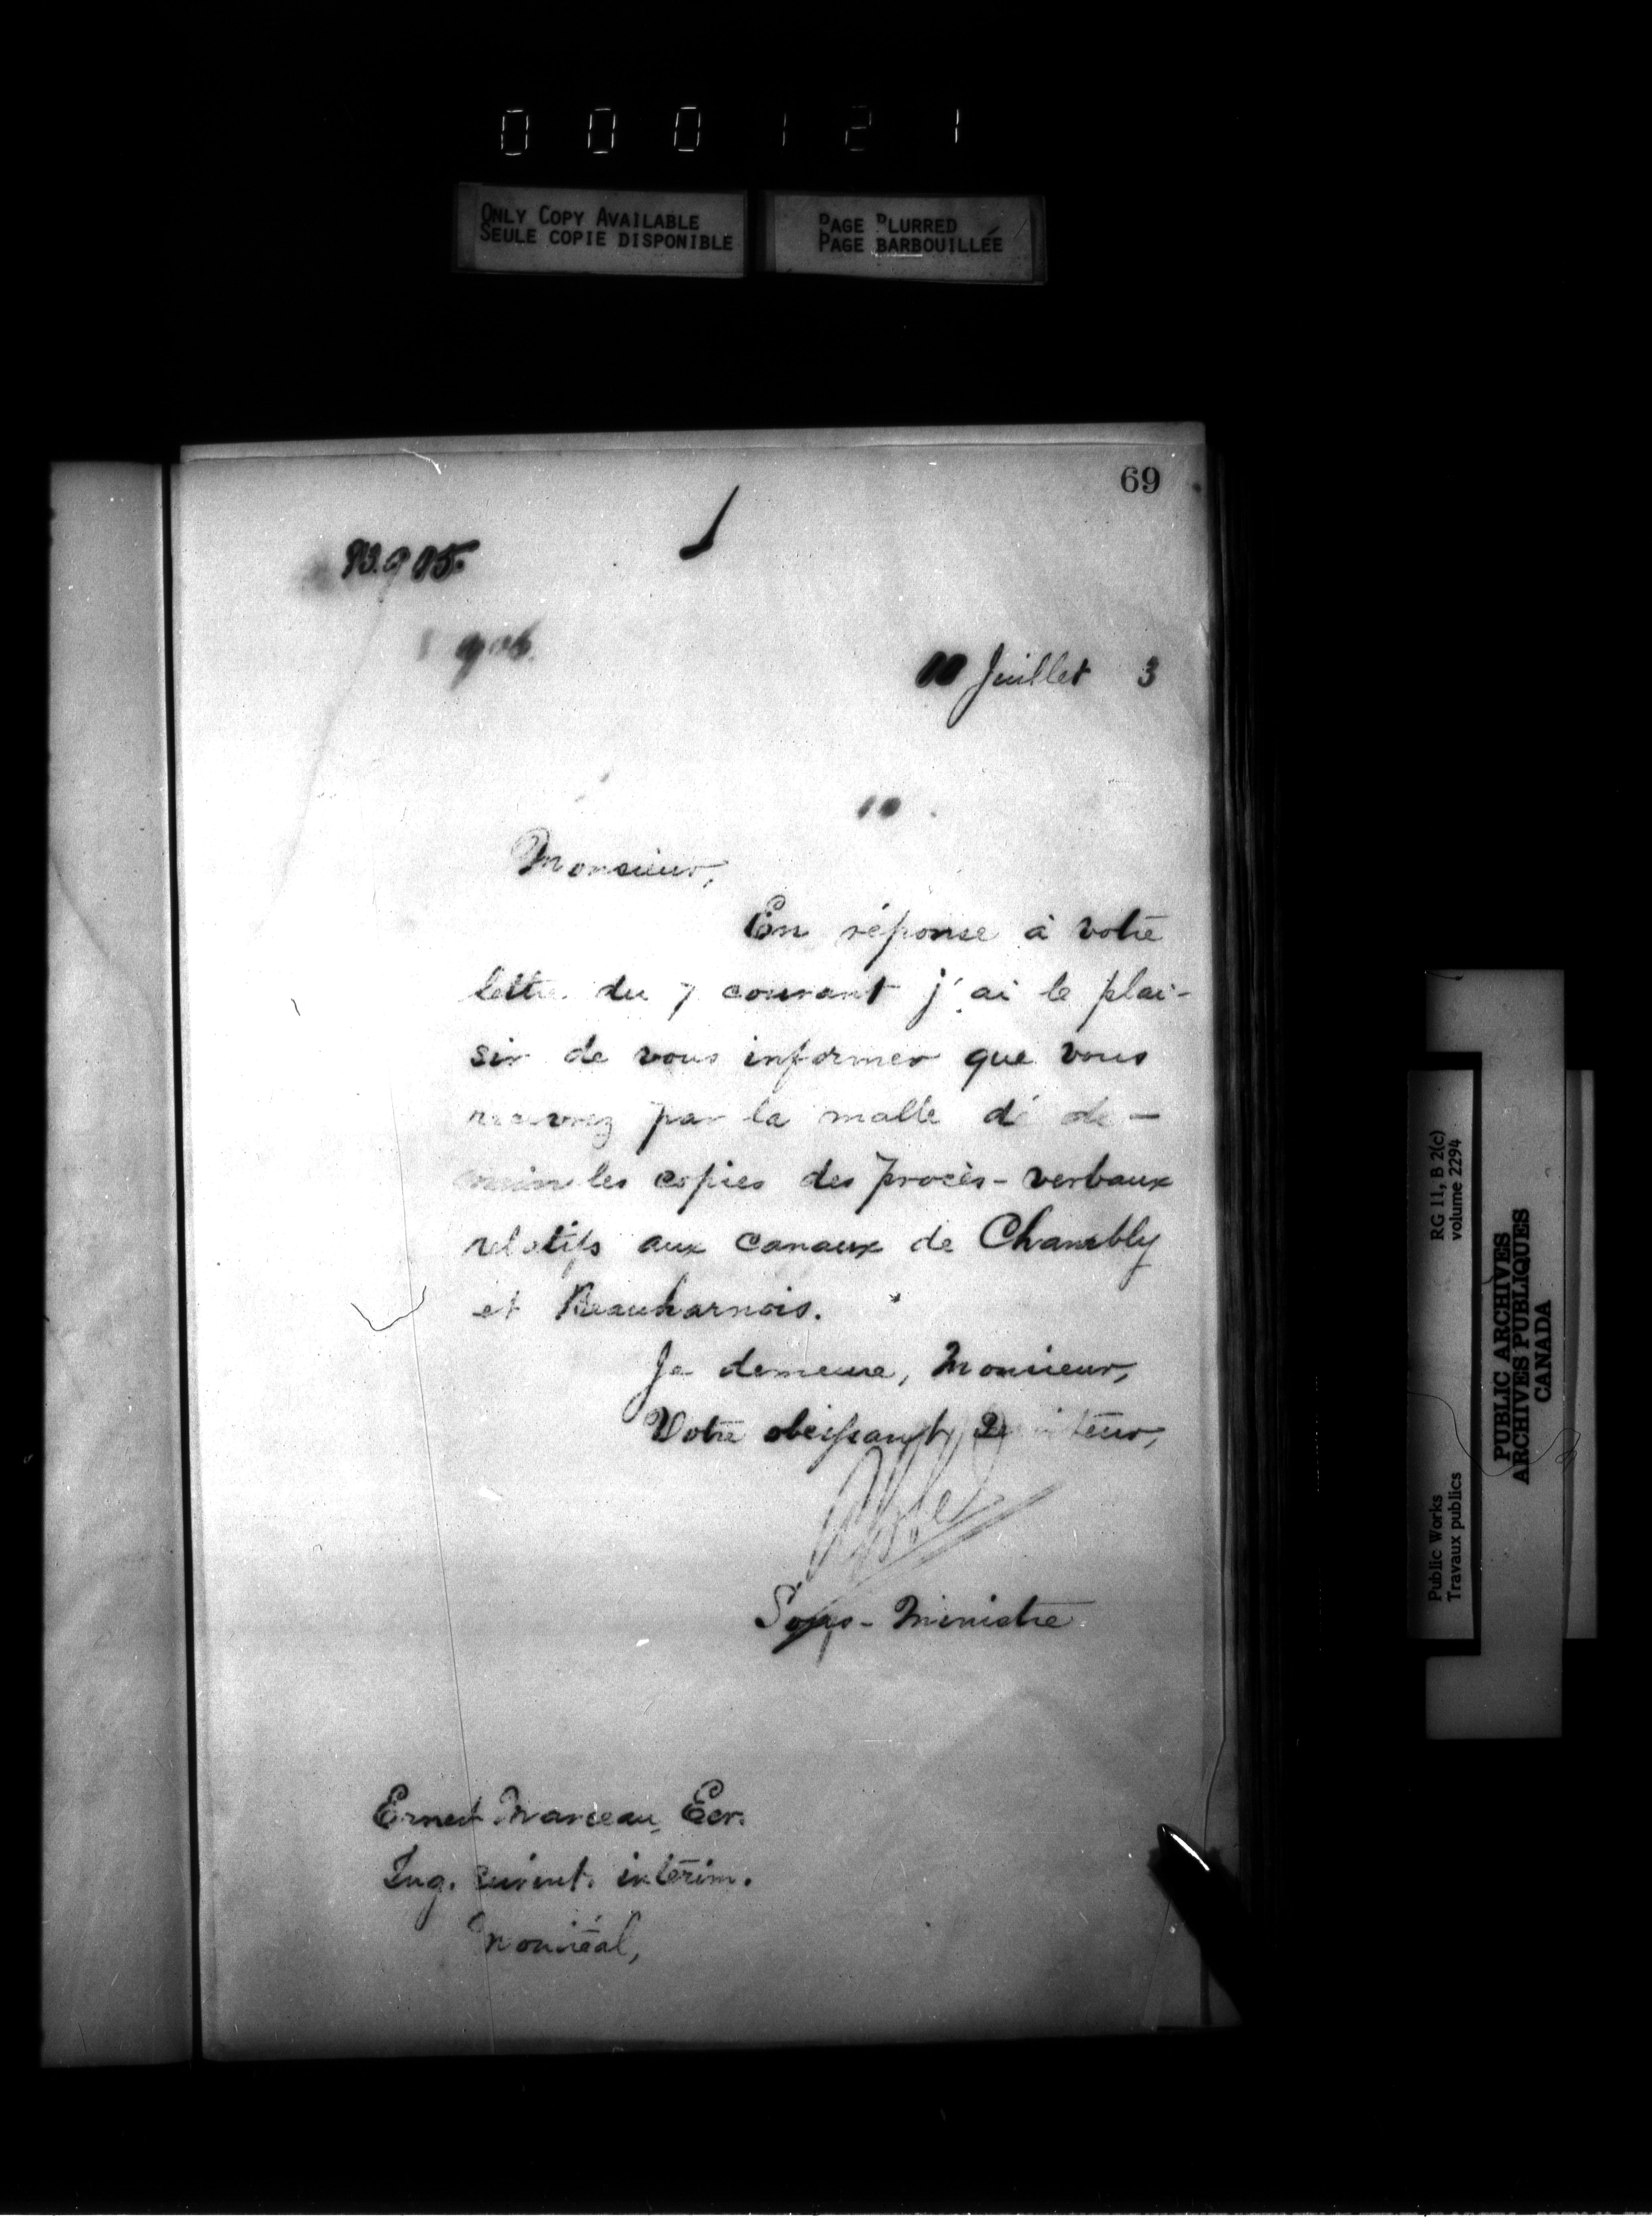 000121
ONLY COPY AVAILABLE
SEULE COPIE DISPONIBLE
PAGE BLURRED
PAGE BARBOUILLÉE
69
905.
906.
10 Juillet 3
10
Monsieur,
En réponse à votre
lettre du 7 courant j'ai le plai-
sir de vous informer que vous
recevrez par la malle de de-
main les copies des procès-verbaux
relatifs aux canaux de Chambly
et Beauharnois.
Je demeure, Monsieur,
Votre obéissant Serviteur,
Sous-Ministre
Ernest Marceau, Ecr.
Ing. surint. intérim.
Montréal,
RG 11, B 2(c)
volume 2294
Public Works
Travaux publics
PUBLIC ARCHIVES
ARCHIVES PUBLIQUES
CANADA